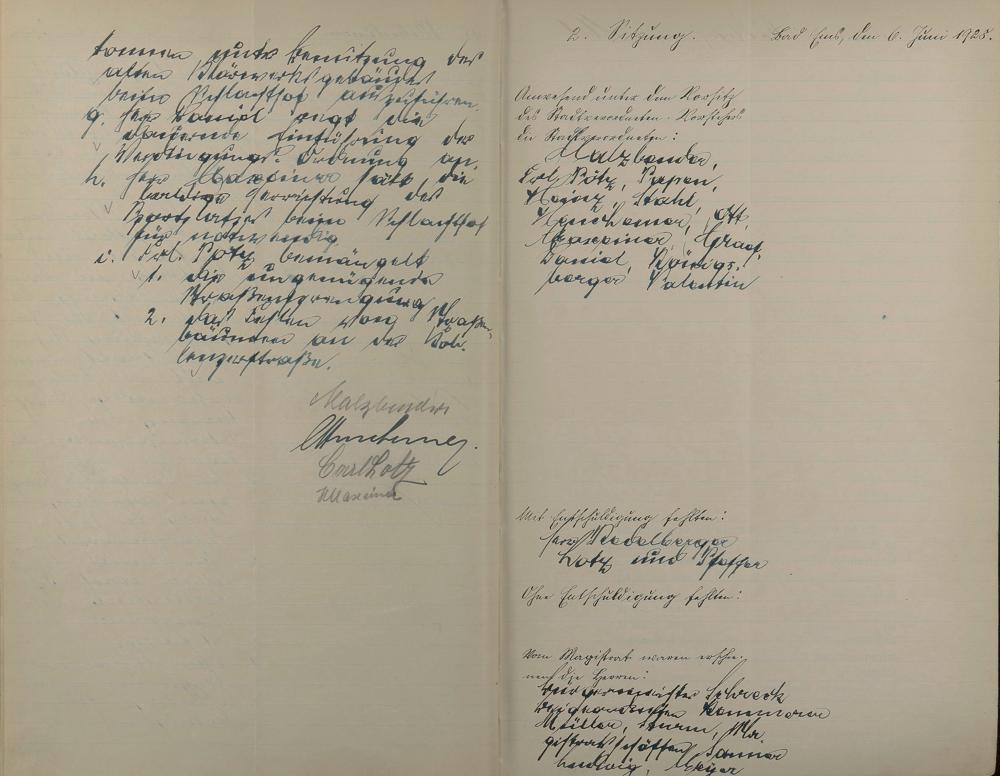 tonnen unter Benützung des
alten Klärwerksgebäudes
beim Schlachthof auszuführen.
g. Herr Daniel regt die
dauernde Einführung der
Verdingungs-Ordnung an.
h. Herr Maxeiner hält die
baldige Herrichtung des
Sportplatzes beim Schlachthof
für notwendig
i. Frl. Pötz bemängelt
1. die ungenügende
Straßensprengung
2. das Fehlen von Straßen-
bäumen an der Kob-
lenzerstraße.
Malzbender
Carl Lotz
Maxeiner
2. Sitzung. Bad Ems, den 6. Juni 1925.
Anwesend unter dem Vorsitz
des Stadtverordneten-Vorstehers
die Stadtverordneten:
Malzbender,
Frl. Pötz, Pepen,
Stahl,
Ott,
Maxeiner, Graf,
Daniel, Königs-
berger Valentin
Mit Entschuldigung fehlten:
Herr
Lotz und Pfeffer
Ohne Entschuldigung fehlten:
Vom Magistrat waren erschie-
nen die Herren:
Bürgermeister Schreck
Beigeordneten Kommerer
Müller, Sturm, Ma-
gistratsschöffen Sanner
Ludwig, Meyer